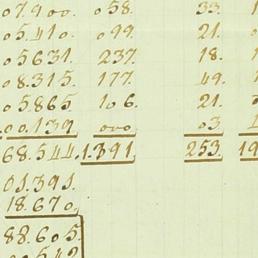 07.900. 058. 33.
05.410. 099. 21.
05.631. 237. 18.
08.315. 177. 49.
05.865 106. 21.
00.139 000. 03.
68.544. 1.391. 253. 19
01.391.
18.670.
88.605.